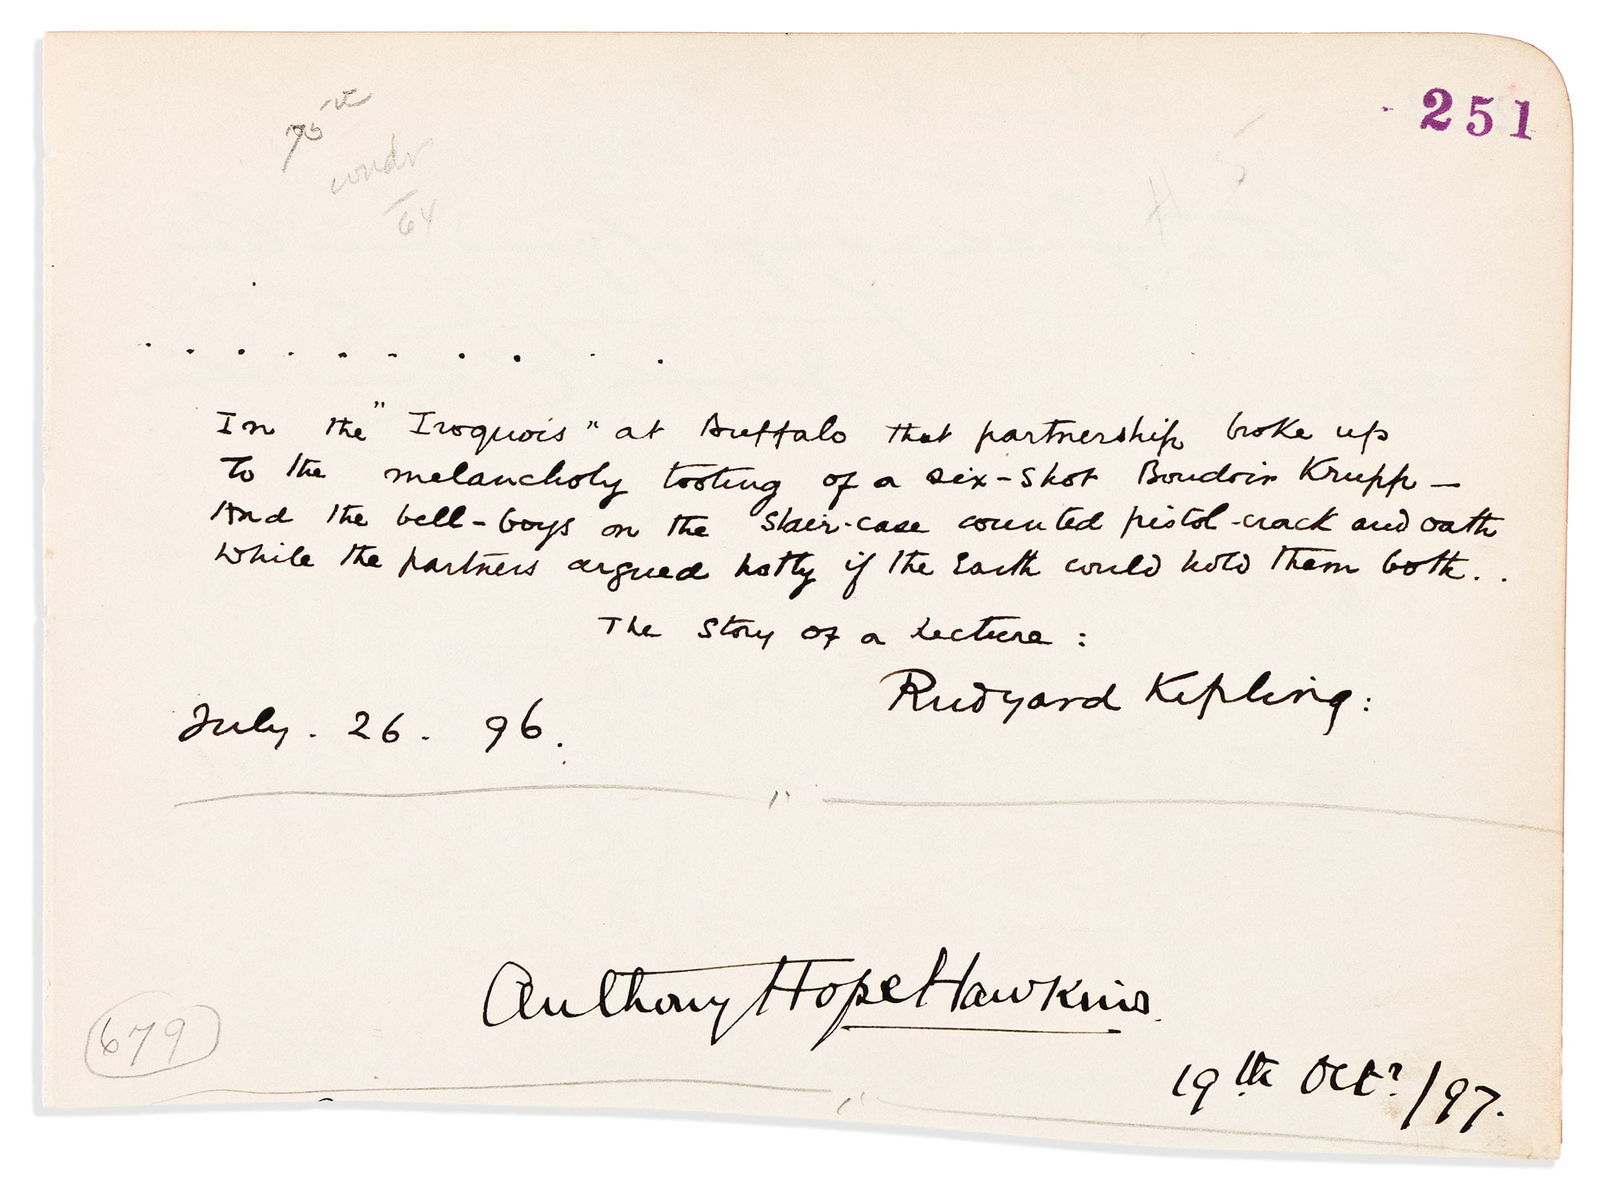 251
75
64
. . . . . . . . . . .
In the "Iroquois" at Buffalo that partnership broke up
To the melancholy tooting of a six-shot Boudoir Krupp —
And the bell-boys on the stair-case counted pistol-crack and oath
While the partners argued hotly if the Earth could hold them both. .
The Story of a Lecture :
Rudyard Kipling :
July. 26. 96.
Anthony Hope Hawkins.
679
19th Octr/97.